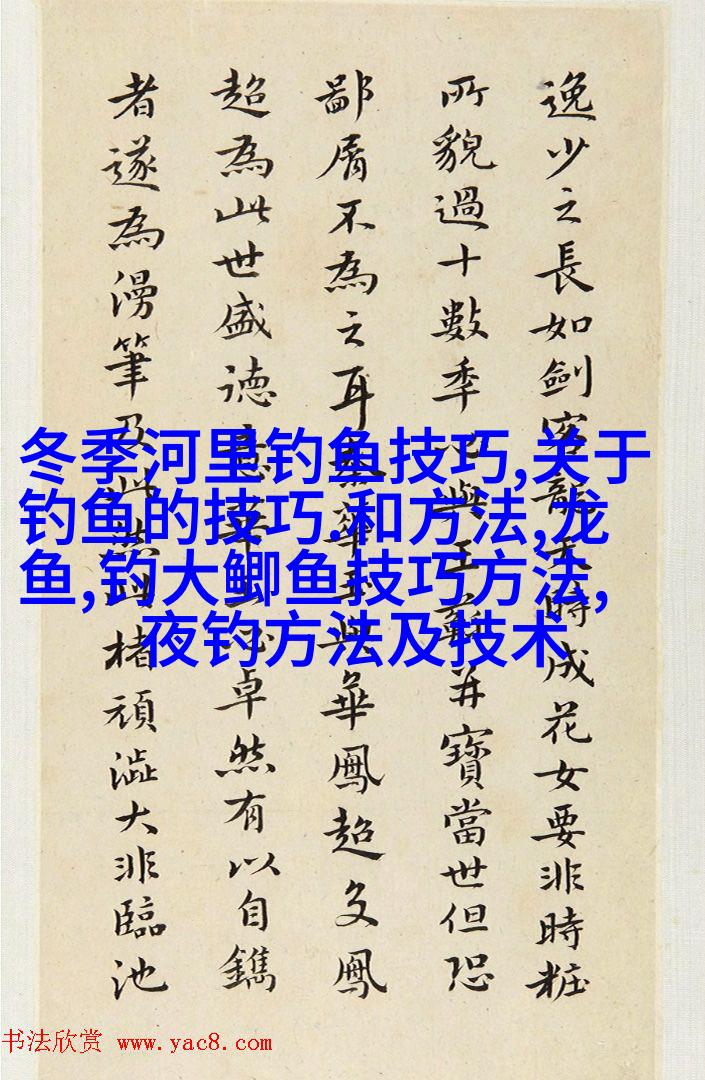 逸少之長如劍客龍時成花女要非時粧
所貌過十數季心與王蘇并寶當世但恐
鄙屑不為之耳華與華鳳超文鳳
超為此世盛德意華卓然有以自鐫
者遂為漫筆及此楮頑澁大非臨池
冬季河里钓鱼技巧,关于
钓鱼的技巧,和方法,龙
鱼,钓大鲫鱼技巧方法,
夜钓方法及技术
书法欣赏 www.yac8.com